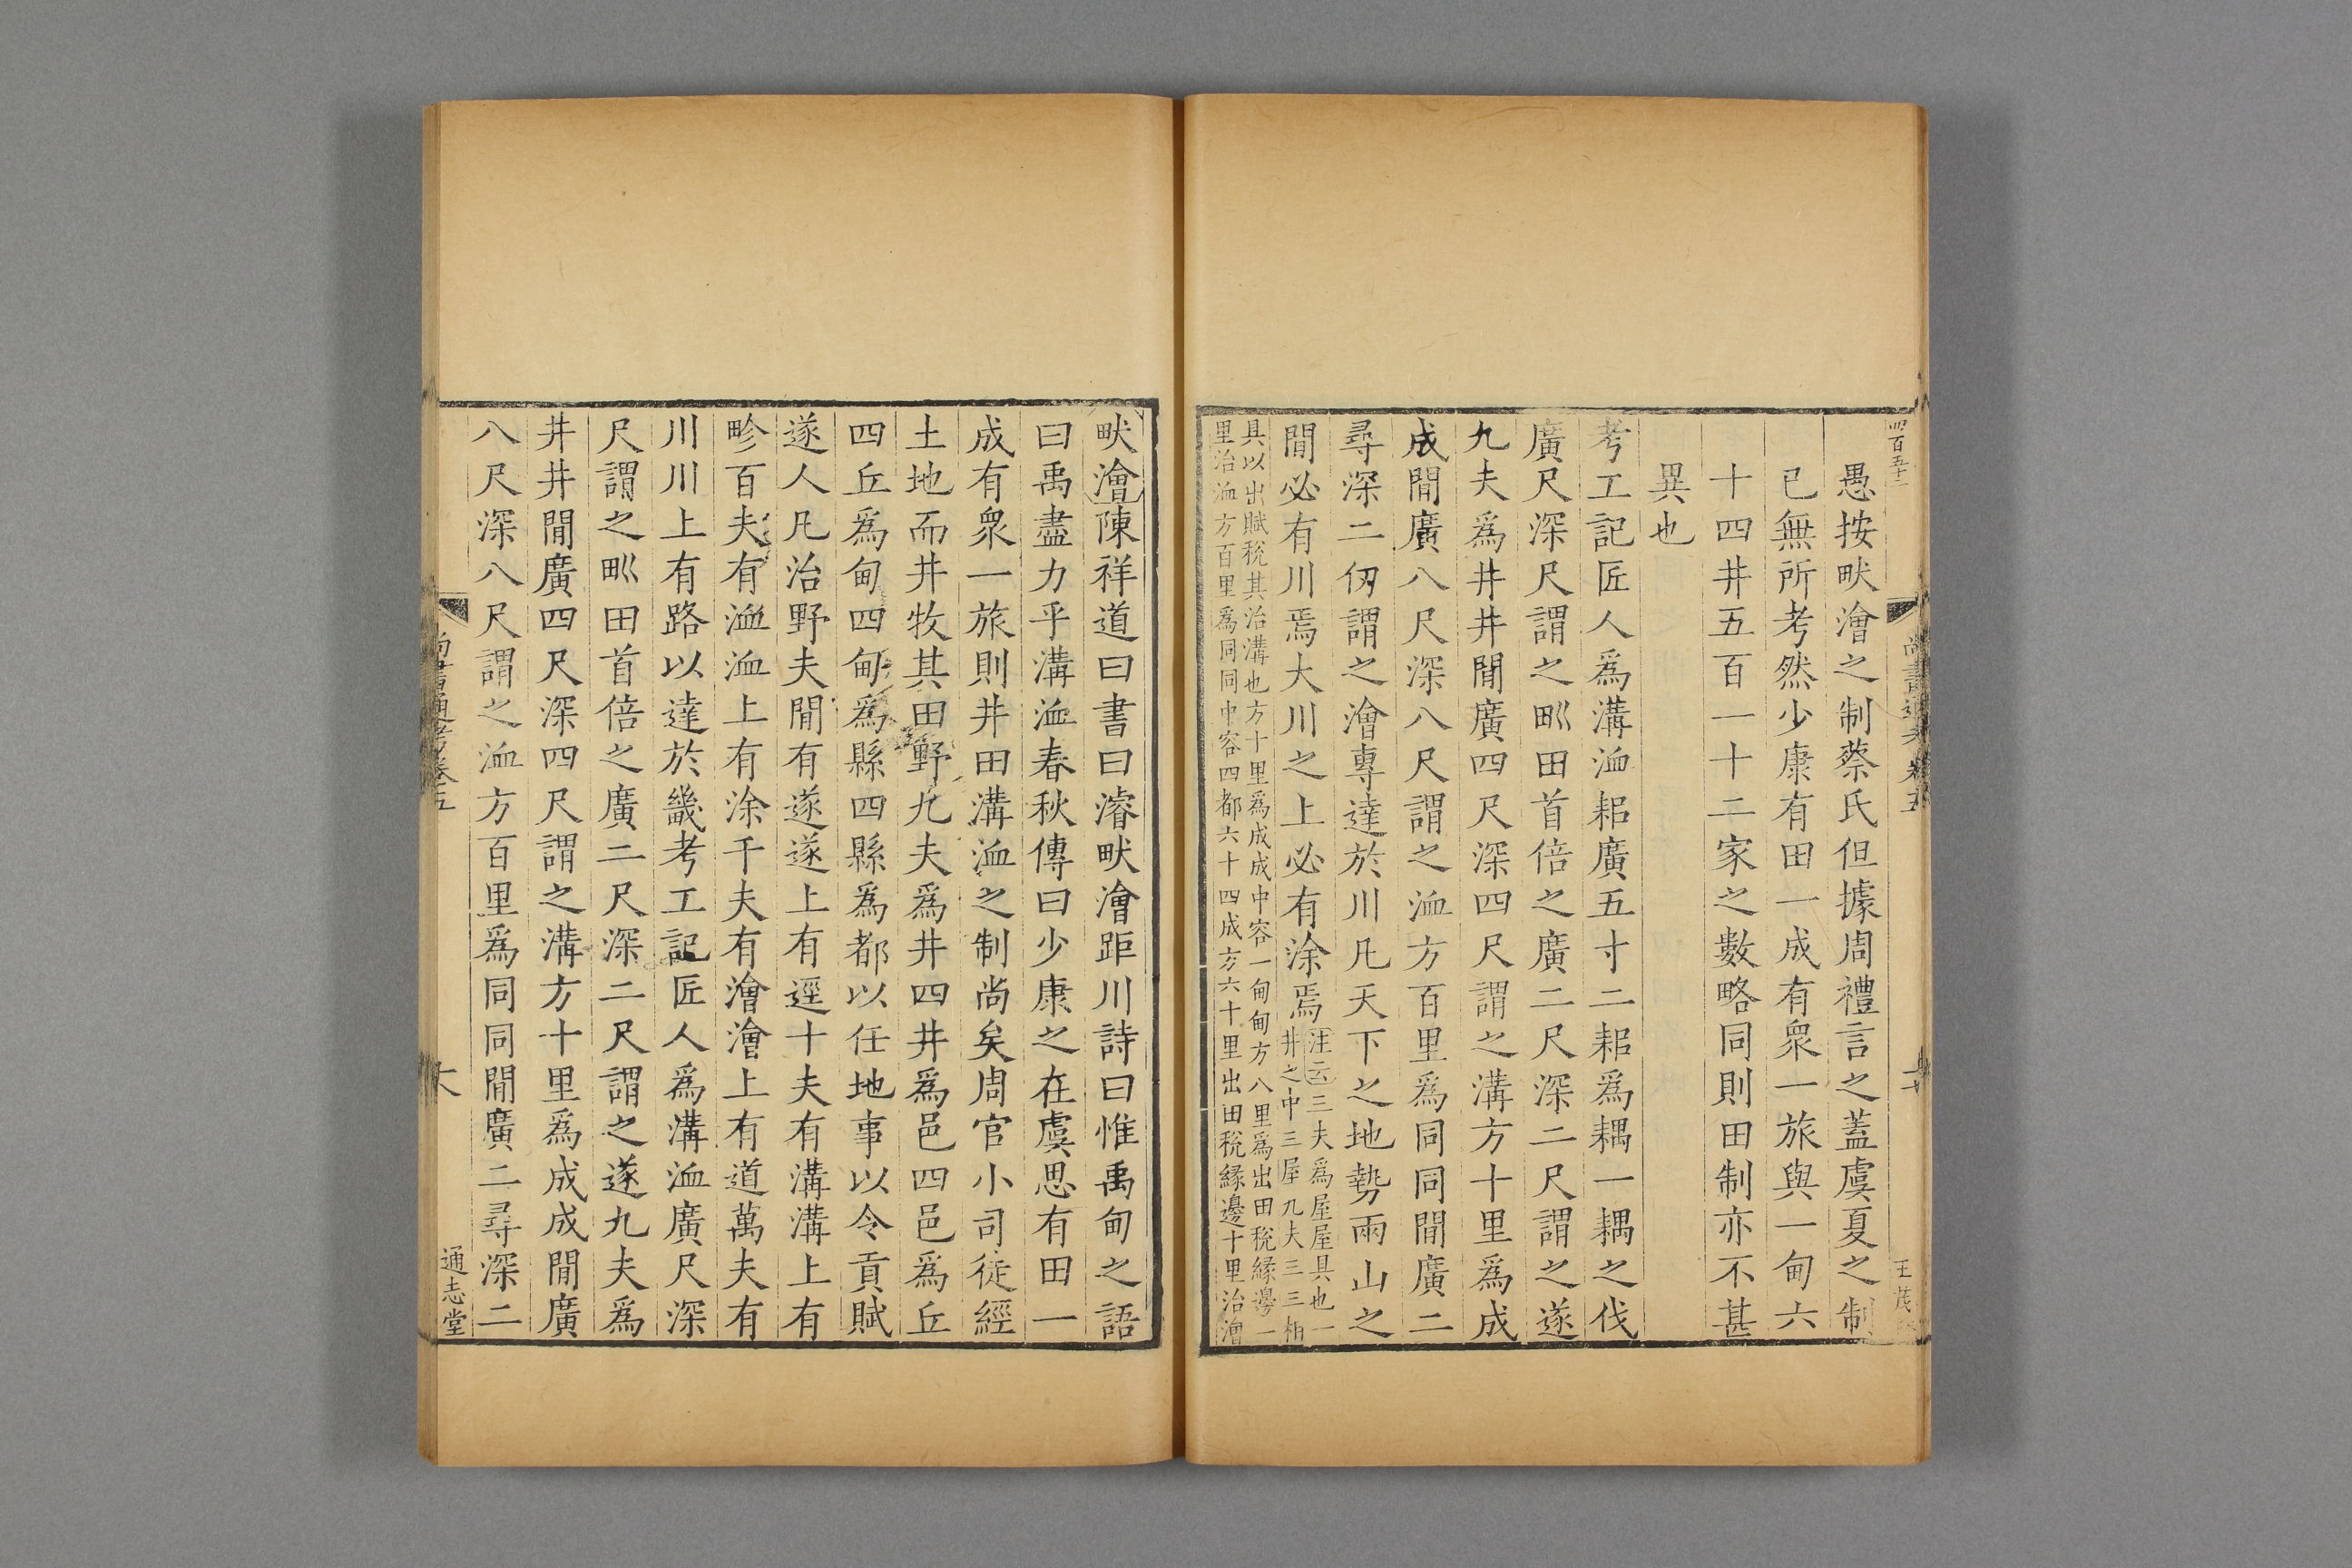 四百五十二
尚書通考卷五
王茂
愚按畎澮之制蔡氏但據周禮言之蓋虞夏之制
已無所考然少康有田一成有衆一旅與一甸六
十四井五百一十二家之數略同則田制亦不甚
異也
考工記匠人爲溝洫耜廣五寸二耜爲耦一耦之伐
廣尺深尺謂之𤰝田首倍之廣二尺深二尺謂之遂
九夫爲井井閒廣四尺深四尺謂之溝方十里爲成
成閒廣八尺深八尺謂之洫方百里爲同同閒廣二
尋深二仞謂之澮專達於川凡天下之地勢兩山之
閒必有川焉大川之上必有涂焉
注云三夫爲屋屋具也一
井之中三屋九夫三三相
具以出賦稅其治溝也方十里爲成成中容一甸甸方八里爲出田稅緣邊一
里治洫方百里爲同同中容四都六十四成方六十里出田稅緣邊十里治澮
畎澮陳祥道曰書曰濬畎澮距川詩曰惟禹甸之語
曰禹盡力乎溝洫春秋傳曰少康之在虞思有田一
成有衆一旅則井田溝洫之制尚矣周官小司徒經
土地而井牧其田野九夫爲井四井爲邑四邑爲丘
四丘爲甸四甸爲縣四縣爲都以任地事以令貢賦
遂人凡治野夫閒有遂遂上有逕十夫有溝溝上有
畛百夫有洫洫上有涂千夫有澮澮上有道萬夫有
川川上有路以達於畿考工記匠人爲溝洫廣尺深
尺謂之𤰝田首倍之廣二尺深二尺謂之遂九夫爲
井井閒廣四尺深四尺謂之溝方十里爲成成閒廣
八尺深八尺謂之洫方百里爲同同閒廣二尋深二
尚書通考卷五
通志堂